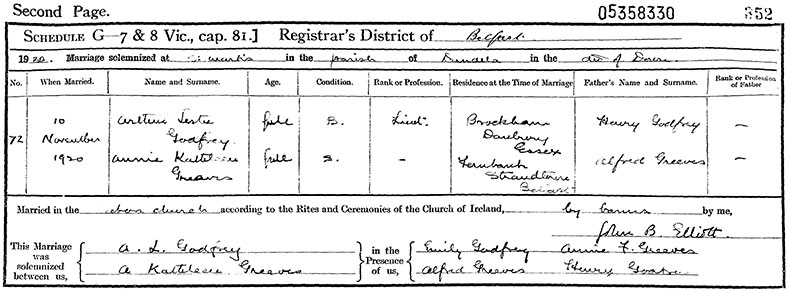 Second Page. 05358330 352
SCHEDULE G—7 & 8 Vic., cap. 81.] Registrar's District of Belfast.
1920. Marriage solemnized at St. Marks in the parish of Dundela in the of Down
No. When Married. Name and Surname. Age. Condition. Rank or Profession. Residence at the Time of Marriage Father's Name and Surname. Rank or Profession of Father
10 Arthur Leslie full B. Lieut. Henry Godfrey —
72 November Godfrey. Danbury Essex
1920 Annie Kathleen full S. — Fernbank Alfred Greeves —
Greeves Strandtown
Belfast
Married in the above church according to the Rites and Ceremonies of the Church of Ireland, by banns by me,
John B. Elliott.
This Marriage was solemnized between us, A. L. Godfrey in the Presence of us, Emily Godfrey Annie F. Greeves
A Kathleen Greeves Alfred Greeves Henry